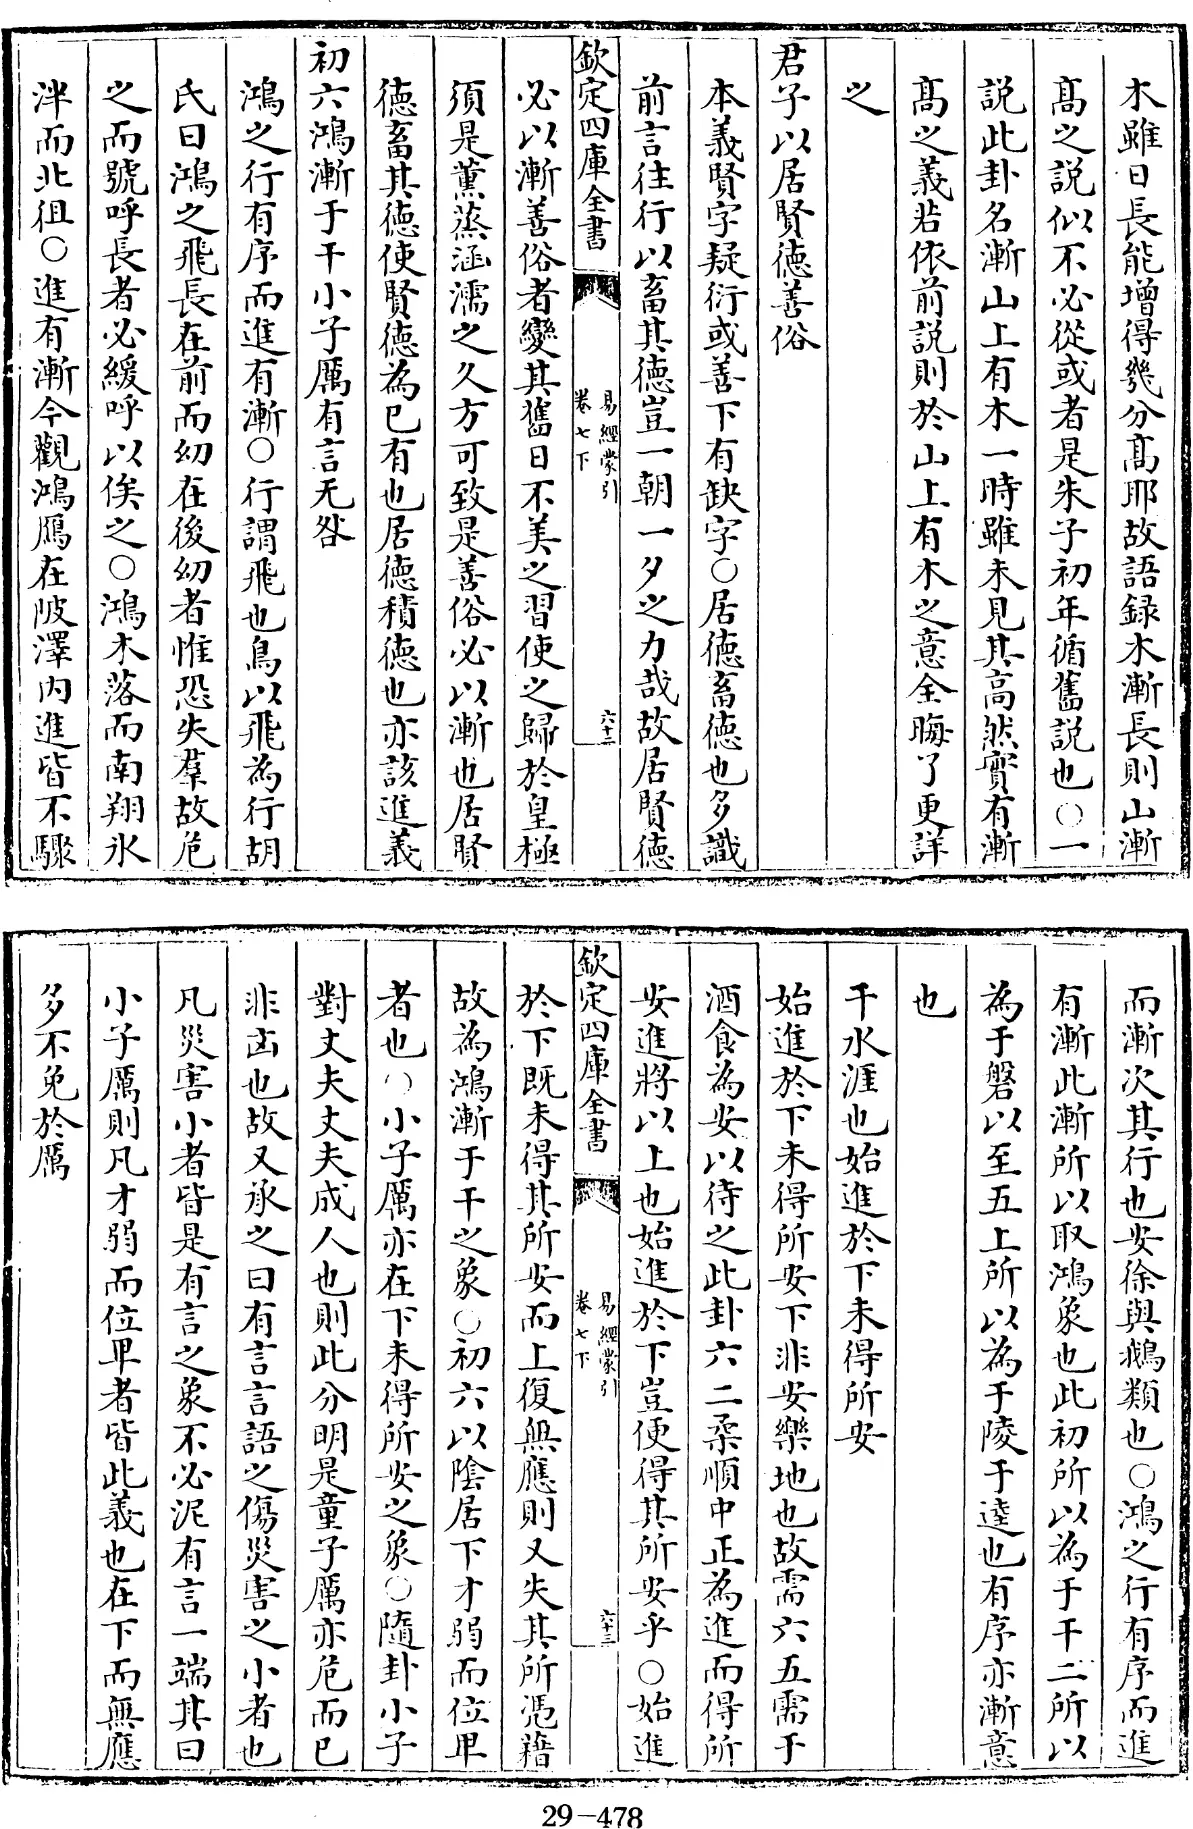 木雖日長能增得幾分髙耶故語録木漸長則山漸
髙之説似不必從或者是朱子初年循舊説也○一
説此卦名漸山上有木一時雖未見其高然實有漸
髙之義若依前説則於山上有木之意全晦了更詳
之
君子以居賢徳善俗
本義賢字疑衍或善下有缺字○居徳畜徳也多識
前言往行以畜其徳豈一朝一夕之力哉故居賢徳
欽定四庫全書
易經蒙引
卷七下
六十二
必以漸善俗者變其舊日不美之習使之歸於皇極
須是薰蒸涵濡之久方可致是善俗必以漸也居賢
徳畜其徳使賢徳為已有也居徳積徳也亦該進義
初六鴻漸于干小子厲有言无咎
鴻之行有序而進有漸○行謂飛也鳥以飛為行胡
氏曰鴻之飛長在前而幼在後幼者惟恐失羣故危
之而號呼長者必緩呼以俟之○鴻木落而南翔氷
泮而北徂○進有漸今觀鴻鴈在陂澤内進皆不驟
而漸次其行也安徐與鵝類也○鴻之行有序而進
有漸此漸所以取鴻象也此初所以為于干二所以
為于磐以至五上所以為于陵于逵也有序亦漸意
也
干水涯也始進於下未得所安
始進於下未得所安下非安樂地也故需六五需于
酒食為安以待之此卦六二柔順中正為進而得所
安進將以上也始進於下豈便得其所安乎○始進
欽定四庫全書
易經蒙引
卷七下
六十三
於下既未得其所安而上復無應則又失其所憑藉
故為鴻漸于干之象○初六以陰居下才弱而位卑
者也○小子厲亦在下未得所安之象○隨卦小子
對丈夫丈夫成人也則此分明是童子厲亦危而已
非凶也故又承之曰有言言語之傷災害之小者也
凡災害小者皆是有言之象不必泥有言一端其曰
小子厲則凡才弱而位卑者皆此義也在下而無應
多不免於厲
29-478